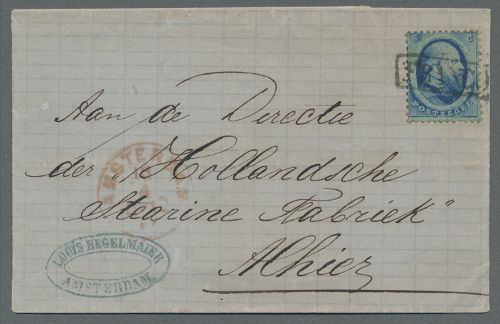 FRANCO
5 5
POSTZEGEL
Aan de Directie
der "Hollandsche
Stearine Fabriek"
Alhier
AMSTERDAM
LOUIS HEGELMAIER
AMSTERDAM.